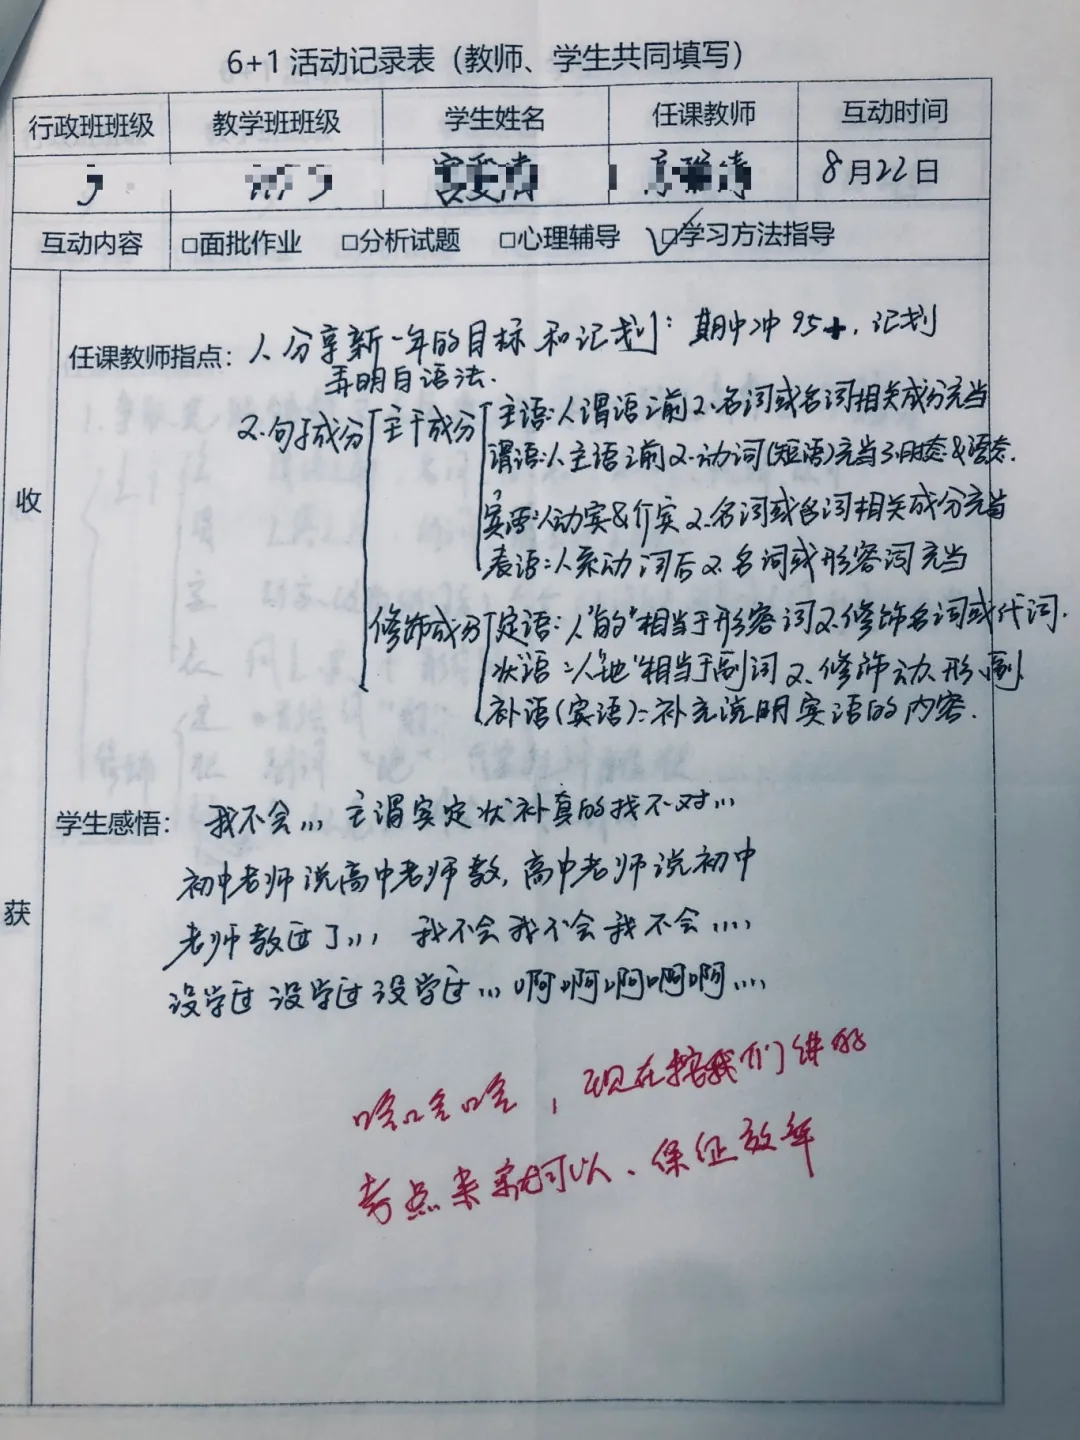 6+1 活动记录表（教师、学生共同填写）
行政班班级 教学班班级 学生姓名 任课教师 互动时间
8月22日
互动内容 □面批作业 □分析试题 □心理辅导 ☑学习方法指导
收获
任课教师指点：1、分享新一年的目标和记划：期中冲95+，记划
弄明白语法.
2.句子成分 主干成分 主语:1.谓语之前 2.名词或名词相关成分充当
谓语:1.主语之前 2.动词(短语)充当 3.时态&语态.
宾语:1.动宾&介宾 2.名词或名词相关成分充当
表语:1.系动词后 2.名词或形容词充当
修饰成分 定语:1."的"相当于形容词 2.修饰名词或代词.
状语:1."地"相当于副词 2.修饰动、形、副
补语(宾语):补充说明宾语的内容.
学生感悟：我不会… 主谓宾定状补真的找不对…
初中老师说高中老师教,高中老师说初中
老师教过了… 我不会我不会我不会….
没学过没学过没学过… 啊啊啊啊啊….
哈哈哈，现在按我们
考点来就可以、保证